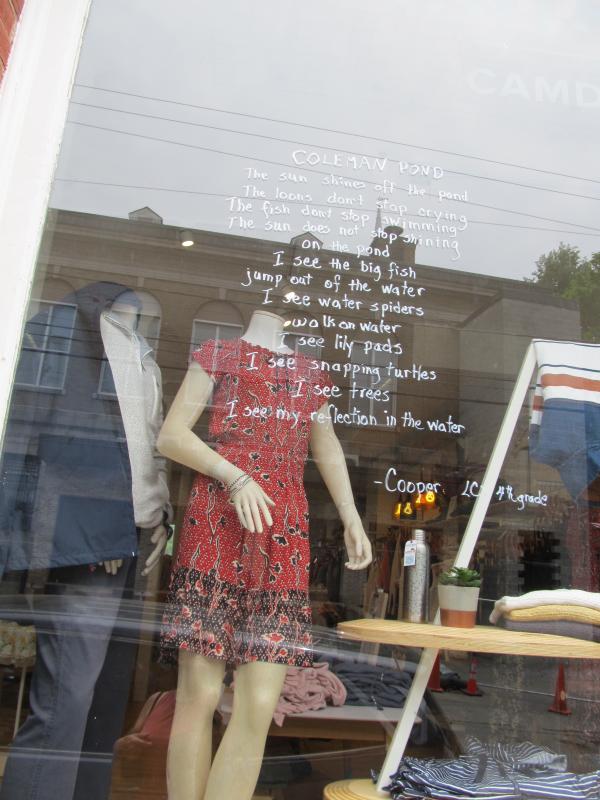 CAMD
COLEMAN POND
The sun shines off the pond
The loons don't stop crying
The fish don't stop swimming
The sun does not stop shining
on the pond
I see the big fish
jump out of the water
I see water spiders
walk on water
I see lily pads
I see snapping turtles
I see trees
I see my reflection in the water
-Cooper 4th grade